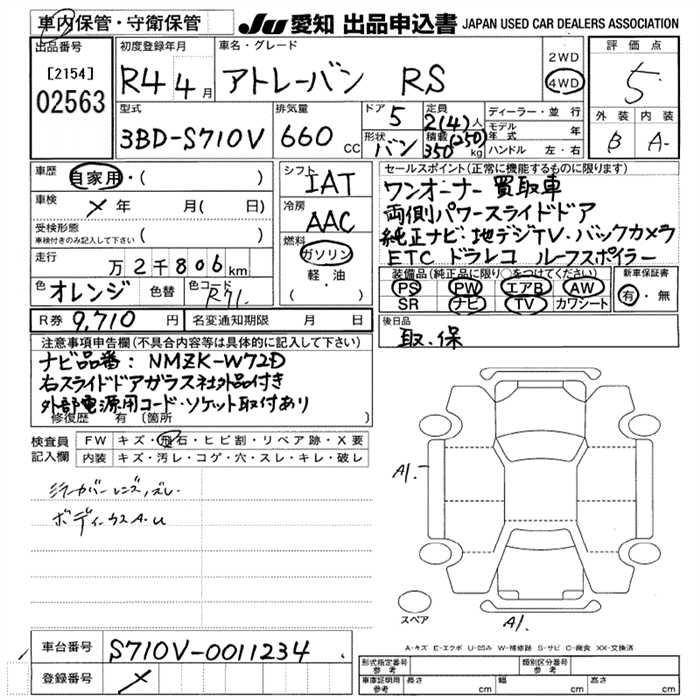 車内保管・守衛保管 JU 愛知 出品申込書 JAPAN USED CAR DEALERS ASSOCIATION
出品番号 [2154] 02563
初度登録年月 R4 4月
車名・グレード アトレーバン RS
2WD 4WD
評価点 5
外装 内装
B A-
型式 3BD-S710V
排気量 660 cc
ドア 5
形状 バン
定員 2(4)人
積載 350(250)kg
ディーラー・並行
モデル年式 年
ハンドル 左・右
車歴 自家用・( )
車検 × 年 月( 日)
受検形態
車検付きのみ記入して下さい ( )
走行 万2千806km
色 オレンジ 色替 色コード R71
シフト IAT
冷房 AAC
燃料 ガソリン
軽・油
( )
セールスポイント(正常に機能するものに限ります)
ワンオーナー 買取車
両側パワースライドドア
純正ナビ:地デジTV・バックカメラ
ETC ドラレコ ルーフスポイラー
装備品(純正品に限り○をつけてください)
PS PW エアB AW
SR ナビ TV カワシート
新車保証書
有・無
R券 9,710 円 名変通知期限 月 日
後日品
取.保
注意事項申告欄(不具合内容等は具体的に記入して下さい)
ナビ品番: NMZK-W72D
右スライドドアガラス社外品付き
外部電源用コード・ソケット取付あり
修復歴 有 〔箇所 〕
検査員記入欄
FW キズ・飛石・ヒビ割・リペア跡・X要
内装 キズ・汚レ・コゲ・穴・スレ・キレ・破レ
ミラーカバー レンズ,ズレ.
ボディーウスA.U
A1.-
スペア
A1.
A-キズ E-エクボ U-凹み W-補修跡 S-サビ C-腐食 XX-交換済
車台番号 S710V-0011234
登録番号 ×
形式指定番号 参考
類別区分番号 参考
車庫証明用 参考 長さ cm 幅 cm 高さ cm